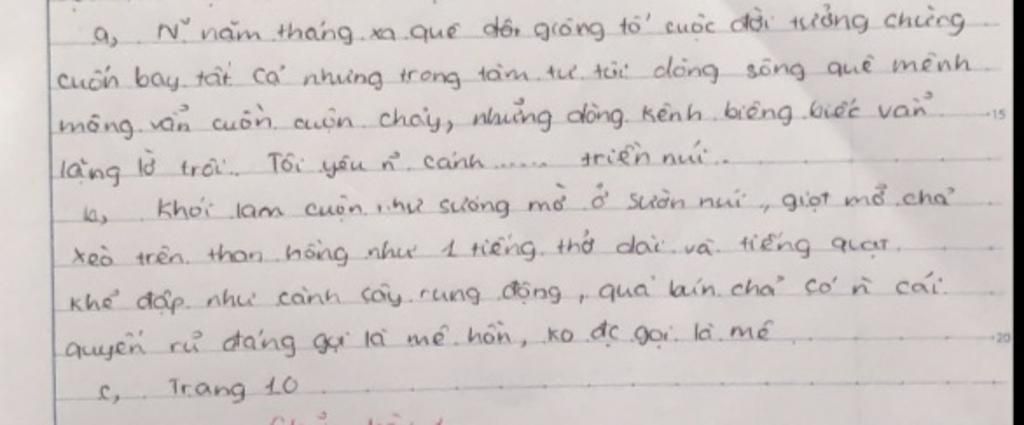 a, N~ năm tháng xa quê dôi giông tố cuộc đời tưởng chừng
cuốn bay tất cả nhưng trong tâm tư tôi dòng sông quê mênh
mông vẫn cuồn cuộn chảy, những dòng kênh biêng biếc vẫn 15
lặng lờ trôi. Tôi yêu n~ cánh ...... triền núi..
b, Khói lam cuộn như sương mờ ở sườn núi, giọt mỡ chả
xèo trên than hồng như 1 tiếng thở dài và tiếng quạt
khẽ đập như cành cây rung động, quả bún chả có n~ cái
quyến rũ đáng gọi là mê hồn, ko đc gọi là mê 20
c, Trang 10